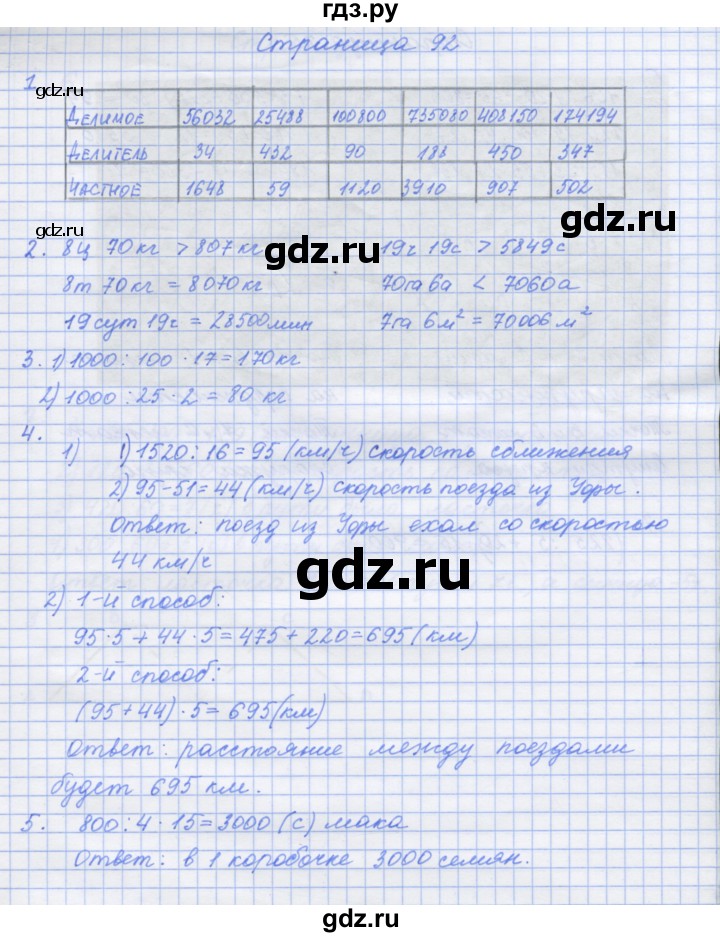 гдз.ру
Страница 92
1
gdz.ru
Делимое 56032 25488 100800 735080 408150 174194
Делитель 34 432 90 188 450 347
Частное 1648 59 1120 3910 907 502
gdz.ru
gdz.ru
gdz.ru
2. 8ц 70кг > 807кг 19ч 19с > 5849с
8т 70кг = 8070кг 70га 6а < 7060а
19сут 19ч = 28500мин 7га 6м² = 70006м²
3. 1) 1000 : 100 · 17 = 170кг
2) 1000 : 25 · 2 = 80 кг
4.
1) 1) 1520 : 16 = 95 (км/ч) скорость сближения
gdz.ru
2) 95-51=44 (км/ч) скорость поезда из Уфы.
Ответ: поезд из Уфы ехал со скоростью
44 км/ч
gdz.ru
2) 1-й способ:
95·5+44·5=475+220=695(км)
2-й способ:
gdz.ru
(95+44)·5=695(км)
Ответ: расстояние между поездами
gdz.ru
будет 695 км.
5. 800:4·15=3000 (с) мака
gdz.ru
Ответ: в 1 коробочке 3000 семян.
gdz.ru